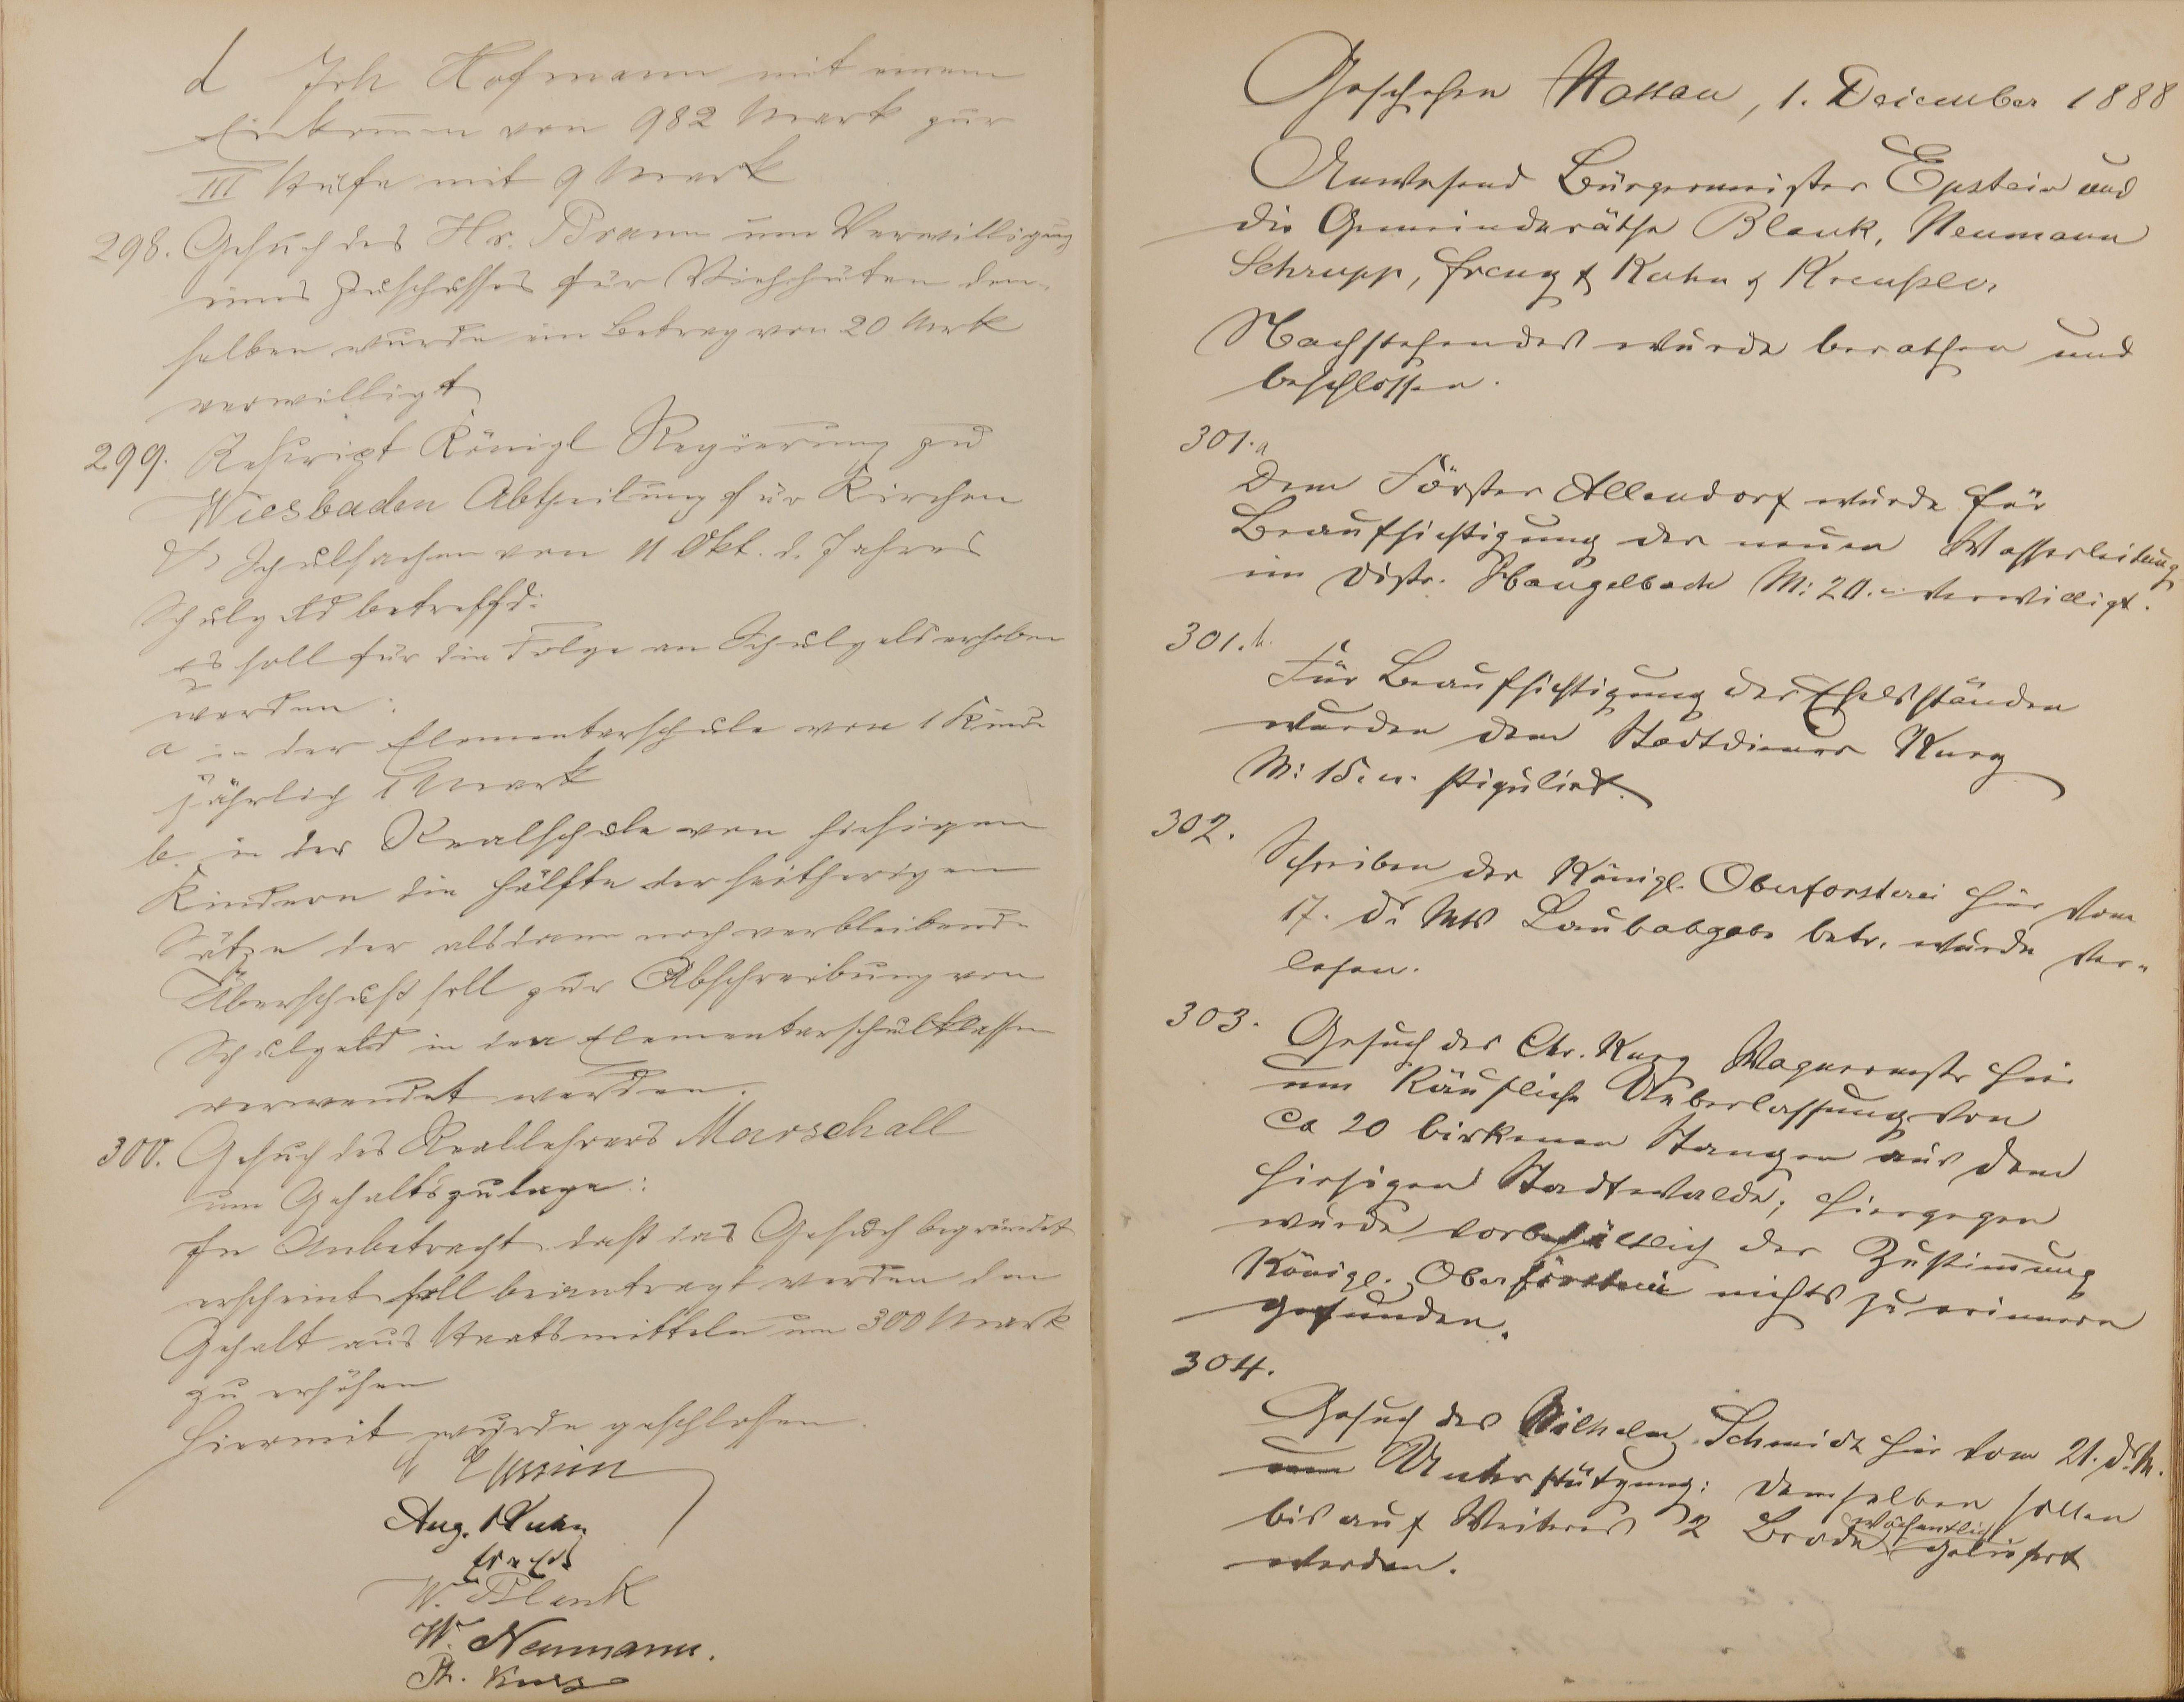 d Joh Hofmann mit einem
Einkom̅en von 982 Mark zur
III Stufe mit 9 Mark
298. Gesuch des Hr. Braun um Verwilligung
eines Zuschusses für Viehhüten dem-
selben wurde ein Betrag von 20 Mark
verwilligt
299. Rescript Königl Regierung zu
Wiesbaden Abtheilung für Kirchen
& Schulsachen von 11 Okt. d. Jahres
Schulgeld betreffd:
es soll für die Folge an Schulgeld erhoben
werden:
a in der Elementarschule von 1 Kinde
jährlich 1 Mark
b. in der Realschule von hiesigen
Kindern die Hälfte der seitherigen
Sätze der alsdann noch verbleibende
Überschuß soll zur Abschreibung von
Schulgeld in den Elementarschulklassen
verwendet werden.
300. Gesuch des Reallehrers Marschall
um Gehaltszulage:
In Anbetracht daß das Gesuch begründet
erscheint soll beantragt werden den
Gehalt aus Staatsmitteln um 300 Mark
zu erhöhen
Hiermit wurde geschlossen.
Epstein
Aug. Kuhn
W. Blank
W. Neumann.
Geschehen Nassau, 1. December 1888
Anwesend Bürgermeister Epstein und
die Gemeinderäthe Blank, Neumann
Schrupp, & Kuhn & Kreußler
Nachstehendes wurde berathen und
beschlossen.
301.a
Dem Förster Allendorf wurde für
Beaufsichtigung der neuen Wasserleitung
im Distr. Hangelbach M: 20.- verwilligt.
301.b.
Für Beaufsichtigung der
wurden dem Stadtdiener Kurz
M: 15.-
302.
Schreiben der Königl. Oberforsterei hier vom
17. ds Mts Laubabgabe betr. wurde ver-
lesen.
303.
Gesuch des Chr. Kurz Wagnermstr hier
um Käufliche Ueberlassung von
ca 20 birkenen Stangen aus dem
hiesigen Stadtwalde; hiergegen
wurde vorbehältlich der Zustim̅ung
Königl. Oberförsterei nichts zu erinnern
gefunden.
304.
Gesuch des Wilhelm Schmidt hier vom 21. ds. M.
um Unterstützung: demselben sollen
bis auf Weiteres 2 Brode wöchentlich geliefert
werden.